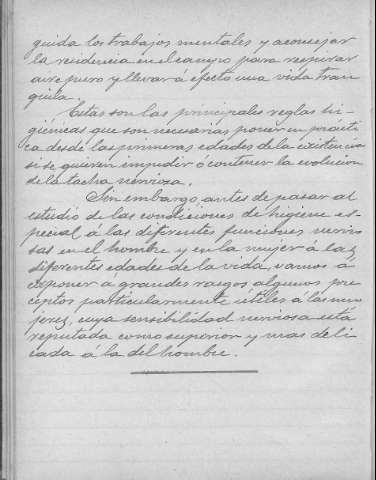 guida los trabajos mentales y aconsejar
la residencia en el campo para respirar
aire puro y llevar á efecto una vida tran
quila.
Estas son las principales reglas hi-
giénicas que son necesarias poner en prácti
ca desde las primeras edades de la existencia
si se quieren impedir ó contener la evolucion
de la tacha nerviosa.
Sin embargo, antes de pasar al
estudio de las condiciones de higiene es-
pecial á las diferentes funciones nervio
sas en el hombre y en la mujer á las
diferentes edades de la vida, vamos á
exponer á grandes rasgos algunos pre
ceptos particularmente útiles á las mu
jeres, cuya sensibilidad nerviosa está
reputada como superior y mas deli
cada á la del hombre.